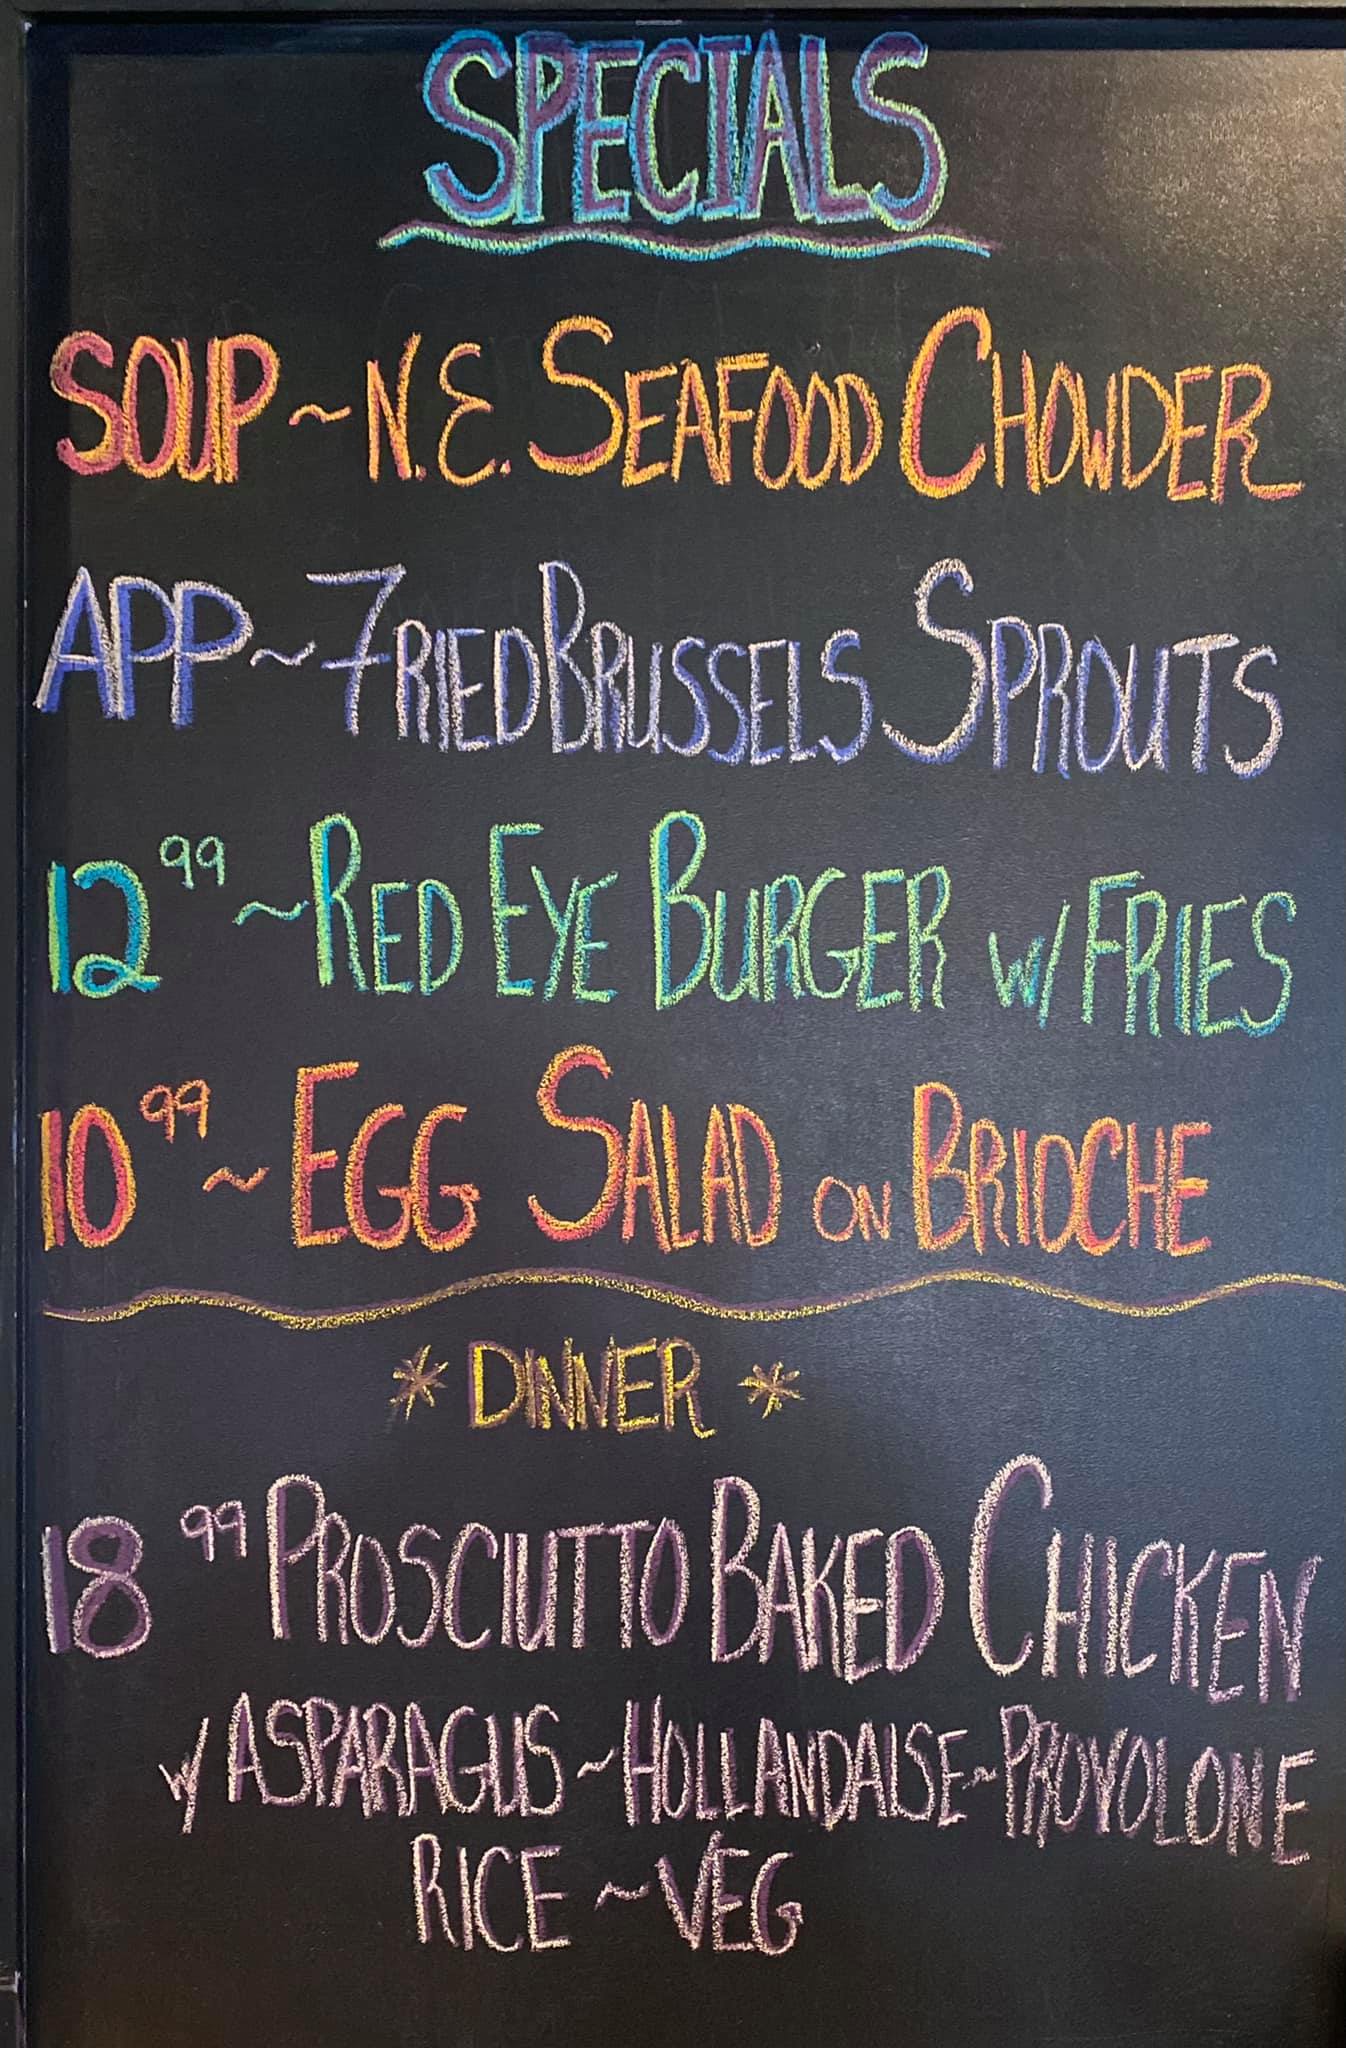 SPECIALS
SOUP ~ N.E. SEAFOOD CHOWDER
APP ~ FRIED BRUSSELS SPROUTS
12 99 ~ RED EYE BURGER w/ FRIES
10 99 ~ EGG SALAD ON BRIOCHE
* DINNER *
18 99 PROSCIUTTO BAKED CHICKEN
w/ ASPARAGUS ~ HOLLANDAISE ~ PROVOLONE
RICE ~ VEG